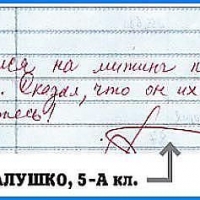 лся на митинг п
. Сказал, что он их
тесь!
АЛУШКО, 5-А кл.